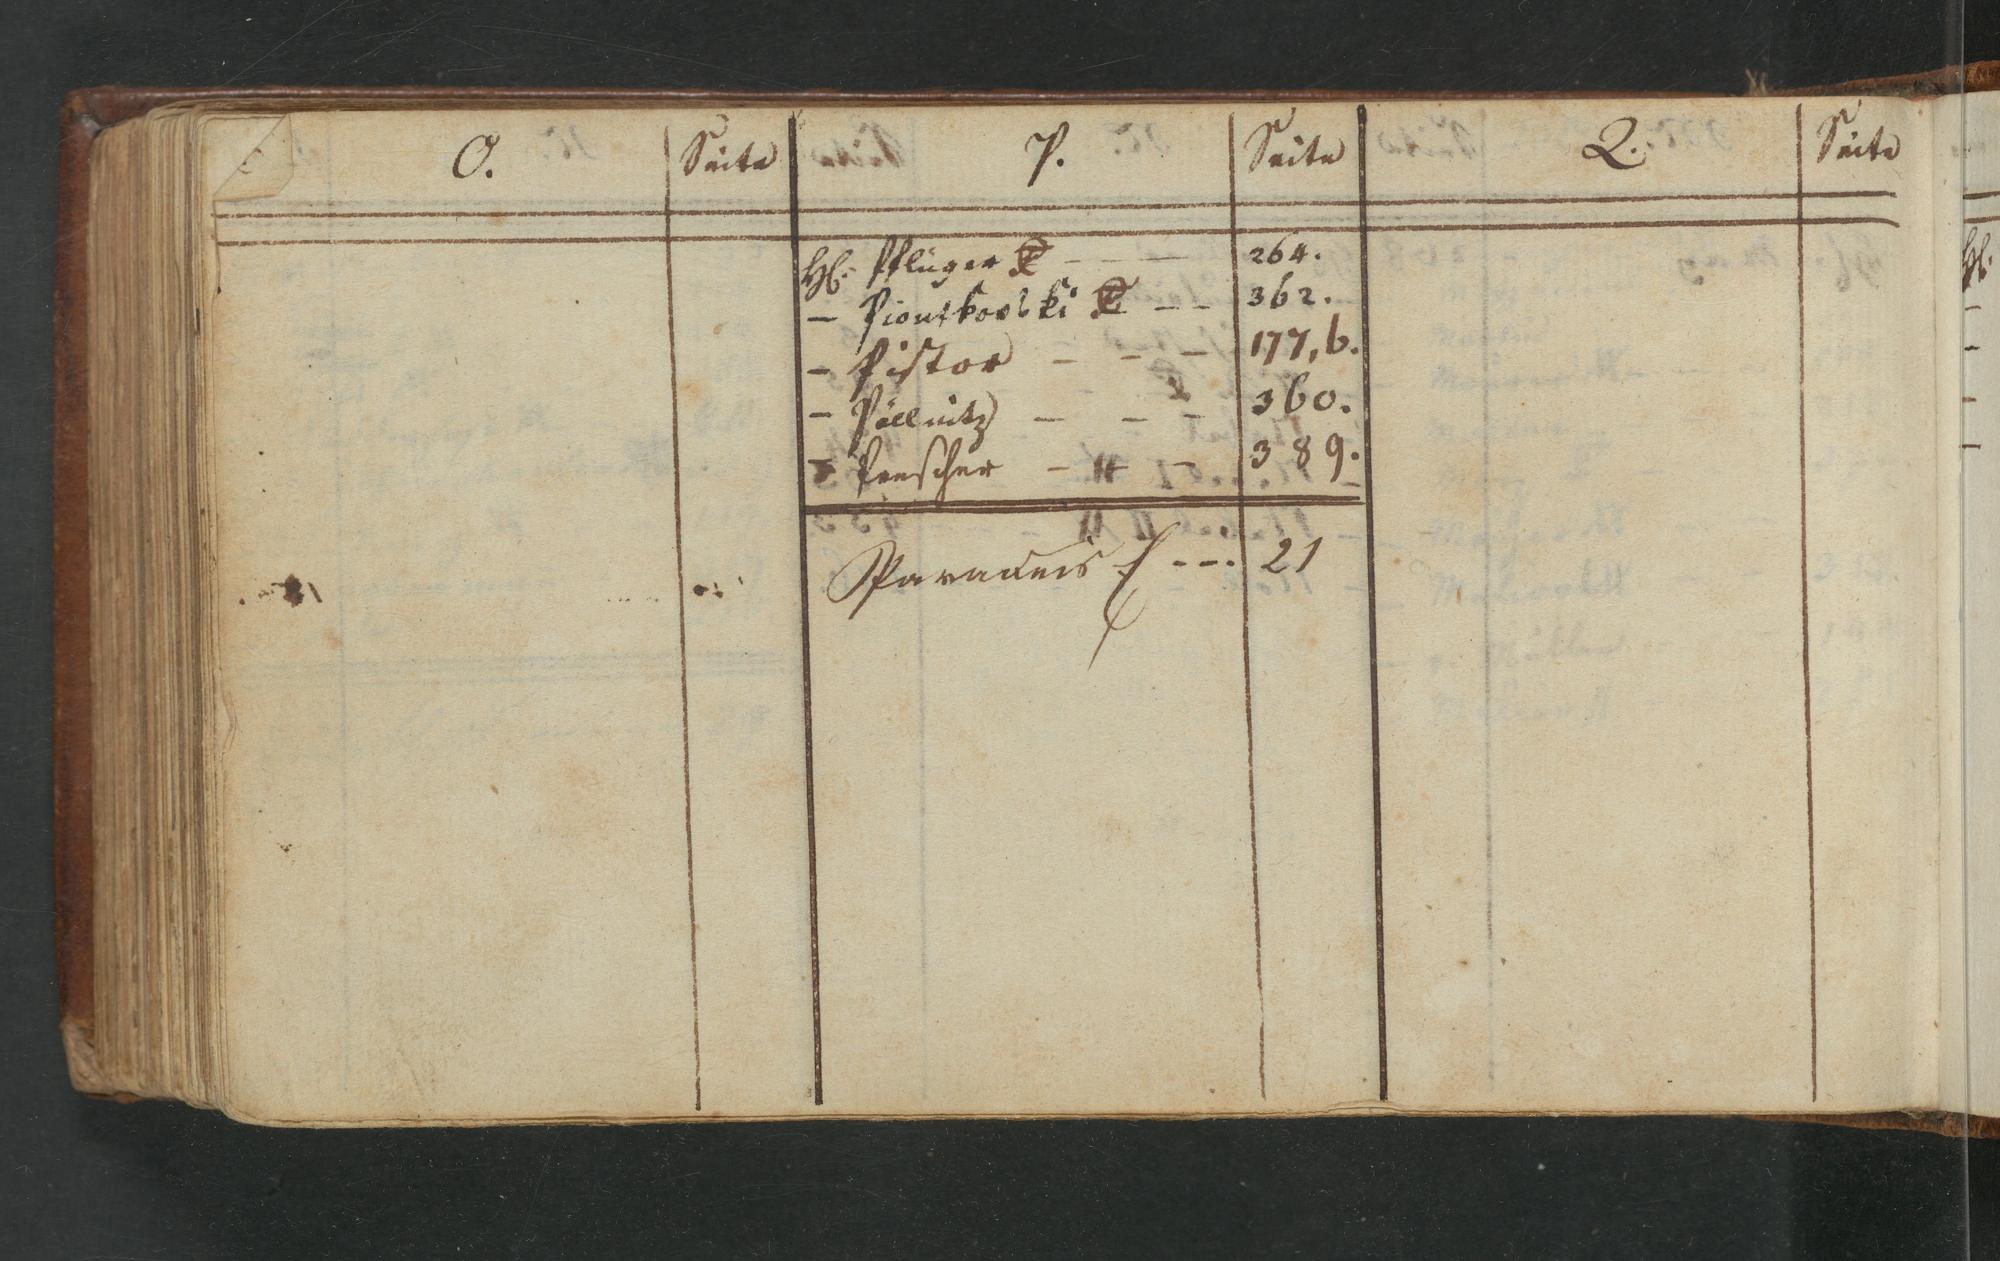 O. Seite P. Seite Q. Seite
H. Pflüger - - - 264.
- Piontkovski - - 362.
- Pistor - - - 177, b.
- Pöllnitz - - - 360.
- Prescher - - 389.
Paradeis - - - 21